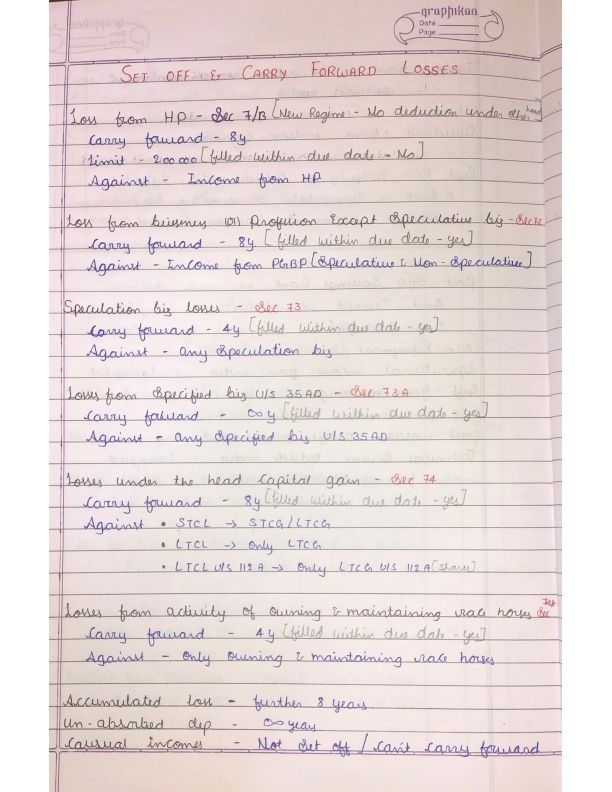 graphikaa
Date
Page
SET OFF & CARRY FORWARD LOSSES
Loss from HP - Sec 71B [New Regime - No deduction under other head]
Carry forward - 8y
Limit - 200000 [filled within due date - No]
Against - Income from HP
Loss from business (or) Profession Except Speculative biz - Sec 72
Carry forward - 8y [filled within due date - yes]
Against - Income from PGBP [Speculative & Non-Speculative]
Speculation biz losses - Sec 73
Carry forward - 4y [filled within due date - yes]
Against - any Speculation biz
Losses from Specified biz U/S 35AD - Sec 73A
Carry forward - ∞ y [filled within due date - yes]
Against - any Specified biz U/S 35AD
Losses under the head Capital gain - Sec 74
Carry forward - 8y [filled within due date - yes]
Against • STCL → STCG/LTCG
• LTCL → only LTCG
• LTCL U/S 112A → only LTCG U/S 112A [shares]
Losses from activity of owning & maintaining race horses Sec
Carry forward - 4y [filled within due date - yes]
Against - only owning & maintaining race horses
Accumulated loss - further 8 years
Un-absorbed dep - ∞ year
Causual incomes - Not Set off / can't carry forward